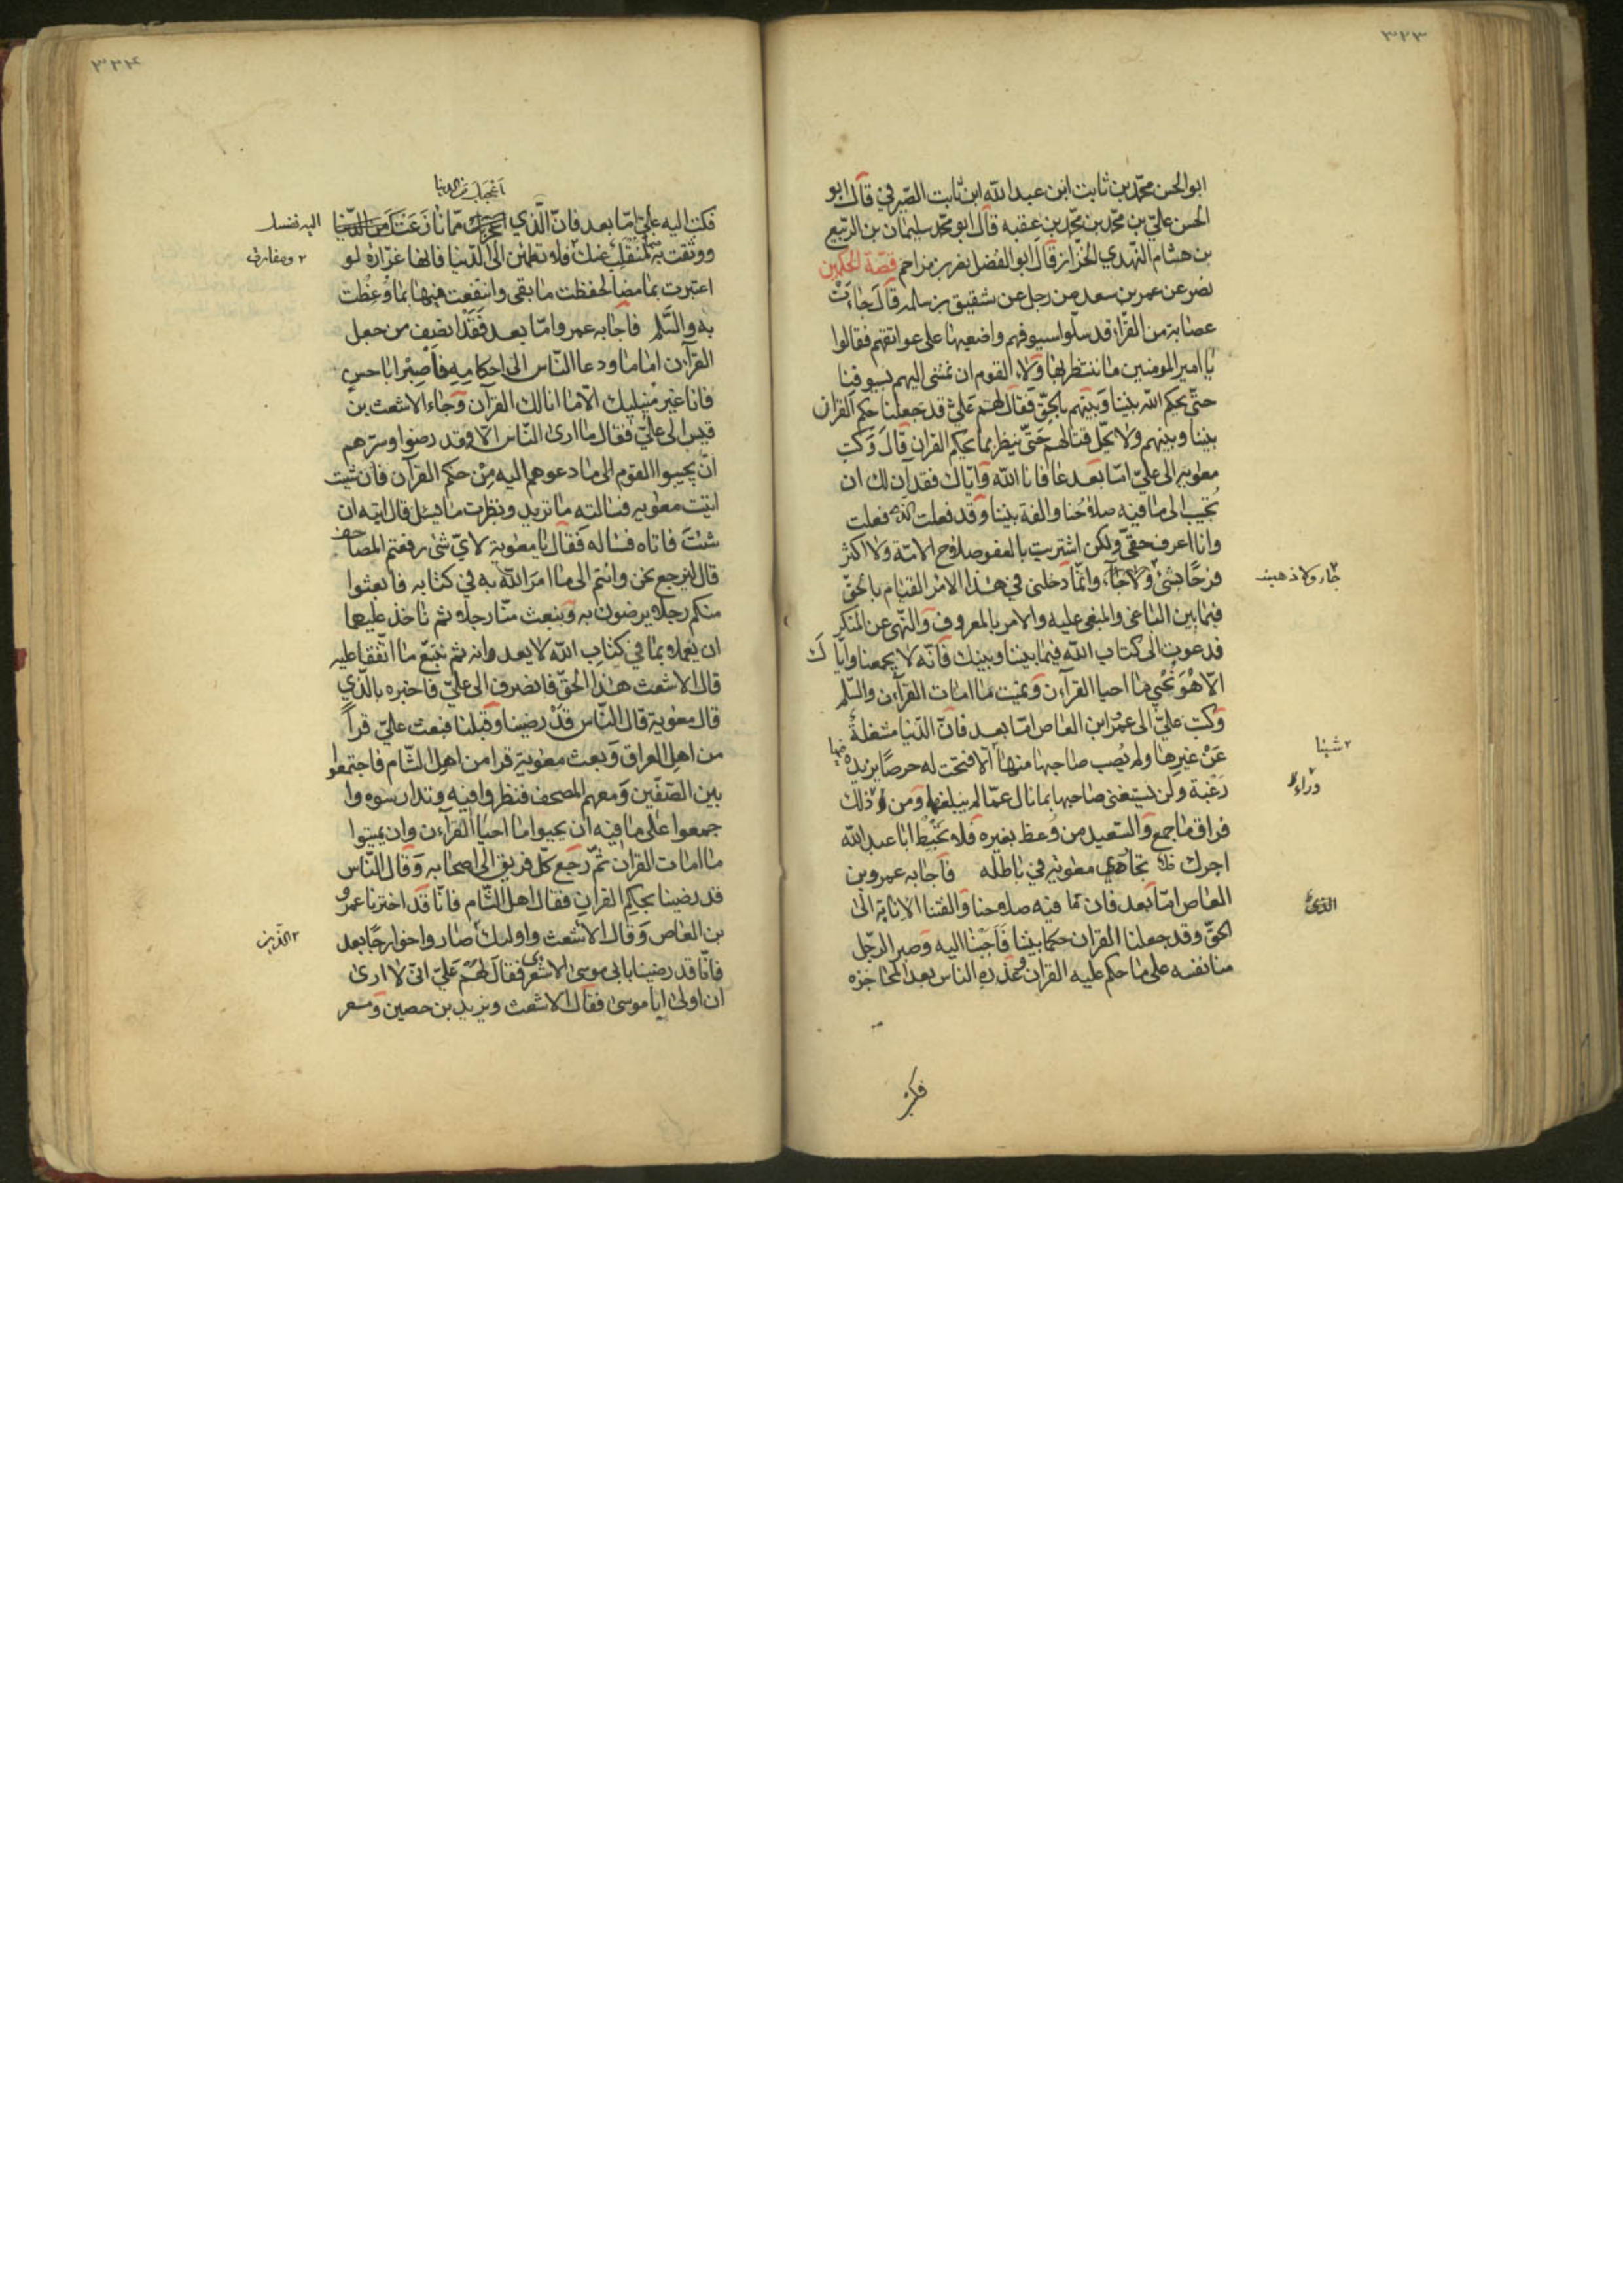 ٣٢٣
ابو الحسن محمّد بن ثابت ابن عبد الله ابن ثابت الصّيرفي قال ابو
الحسن علي بن محمّد بن محمّد بن عقبه قال ابو محمّد سليمان بن الرّبيع
بن هشام النّهدي الخزّاز قال ابو الفضل نصر بن مزاحم قصّة الحكمين
نصر عن عمر بن سعد من رجل عن شقيق بن سلمه قال جاءت
عصابة من القرّاء قد سلّوا سيوفهم واضعيها على عواتقهم فقالوا
يا امير المومنين ما ننتظر بهاولاء القوم ان نمشى اليهم بسيوفنا
حتّى يحكم الله بيننا وبينهم بالحقّ فقال لهم عليّ قد جعلنا حكم القران
بيننا وبينهم ولا يحلّ قتالهم حتّى ننظر بما يحكم القران قال وكتب
معويه الى عليّ امّا بعد عافانا الله وايّاك فقد آن لك ان
تجيب الى ما فيه صلاحنا والفة بيننا وقد فعلت الذي فعلت
وانا اعرف حقّى ولكن اشتريت بالعفو صلاح الامّة ولا اكثر
فرحًا بشئ ولا جاء وانّما دخلنى في هذا الامر القيام بالحقّ
جاء ولا ذهب
فيما بين الباغى والمبغى عليه والامر بالمعروف والنّهى عن المنكر
فدعوت الى كتاب الله فيما بيننا وبينك فانّه لا يجمعنا وايّاك
الّا هو نحيي ما احيا القرآن ونميت ما امات القرآن والسّلم
وكتب عليّ الى عمر ابن العاص امّا بعد فانّ الدّنيا مشغلة
عن غيرها ولم يُصب صاحبها منها الّا فتحت له حرصًا يزيده فيها
شيئا
رغبة ولن يستغنى صاحبها بما نال عمّا لم يبلغه ومن ذلك
وراء
فراق ما جمع والسّعيد من وُعظ بغيره فلا تحبط ابا عبد الله
اجرك ولا تجاهي معويه في باطله فاجابه عمرو بن
العاص امّا بعد فان ما فيه صلاحنا والفتنا الانابة الى
الذى
الحقّ وقد جعلنا القران حكما بيننا فاجبنا اليه وصبر الرّجل
منا نفسه على ما حكم عليه القران وعذره الناس بعد المحاجزه
فكتب
٣٢٤
اعجبك من الدنيا
فكتب اليه عليّ امّا بعد فانّ الّذي ممّا نازعتك
اليه نفسك
ووثقت به لمنقلب عنك فلا تطمئن الى الدّنيا فانها غرّارة لو
ومفارق
اعتبرت بما مضا لحفظت ما بقى وانتفعت منها بما وُعِظت
به والسّلم فاجابه عمرو امّا بعد فَقَد انصف من جعل
القرآن اماما ودعا النّاس الى احكامِهِ فاصبر ابا حسن
فانا غير منيليك الّا ما انالك القرآن وجاء الاشعث بن
قيس الى عليّ فقال ما ارى النّاس الّا وقد رضوا وسرّهم
انّ يجيبوا القوم الى ما دعوهم اليه من حكم القرآن فان شيت
اتيت معويه فسالته ما تريد ونظرت ما يسئل قال ايته ان
شئت فاتاه فساله فقال يا معوية لايّ شئ رفعتم المصاحف
قال لنرجع نحن وانتم الى ما امر الله به في كتابه فابعثوا
منكم رجلا يرضون به ونبعث منّا رجلا ثم ناخذ عليهما
ان يعملا بما في كتاب الله لا يعدوانه ثم نتبع ما اتّفقا عليه
قال الاشعث هذا الحقّ فانصرف الى عليّ فاخبره بالّذي
قال معوية قال النّاس قَدْ رضينا وقبلنا فبعث عليّ قرأً
من اهل العراق وبعث معوية قرا من اهل الشّام فاجتمعوا
بين الصّفّين ومعهم المصحف فنظروا فيه وتدارسوه وا
جمعوا على ما فيه ان يحيوا ما احيا القرآن وان يميتوا
ما امات القران ثمّ رجع كلّ فريق الى اصحابه وقال النّاس
قد رضينا بحكم القران فقال اهل الشّام فانّا قد اخترنا عمرو
بن العاص وقال الاشعث واوليك صاروا خوارجًا بعد
الّذين
فانّا قد رضينا بابى موسى الاشعرى فقال لهم عليّ انّى لا ارى
ان اولى ابا موسى فقال الاشعث ويزيد بن حصين ومسعر